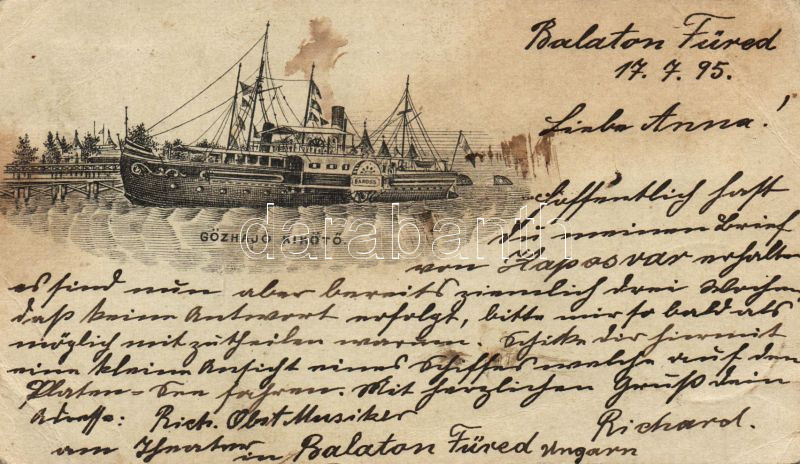 Balaton Füred
17. 7. 95.
Liebe Anna!
Hoffentlich hast
du meinen Brief
von Kaposvar erhalten
es sind nun aber bereits ziemlich drei Wochen
daß keine Antwort erfolgt, bitte mir so bald als
möglich mitzutheilen warum. Schicke dir hiermit
eine kleine Ansicht eines Schiffes welche auf den
Platen-See fahren. Mit herzlichen Gruß dein
Richard.
Adresse: Rich. Obst Musiker
am Theater in Balaton Füred Ungarn
BAROSS
GŐZHAJÓ KIKÖTŐ.
darabanth